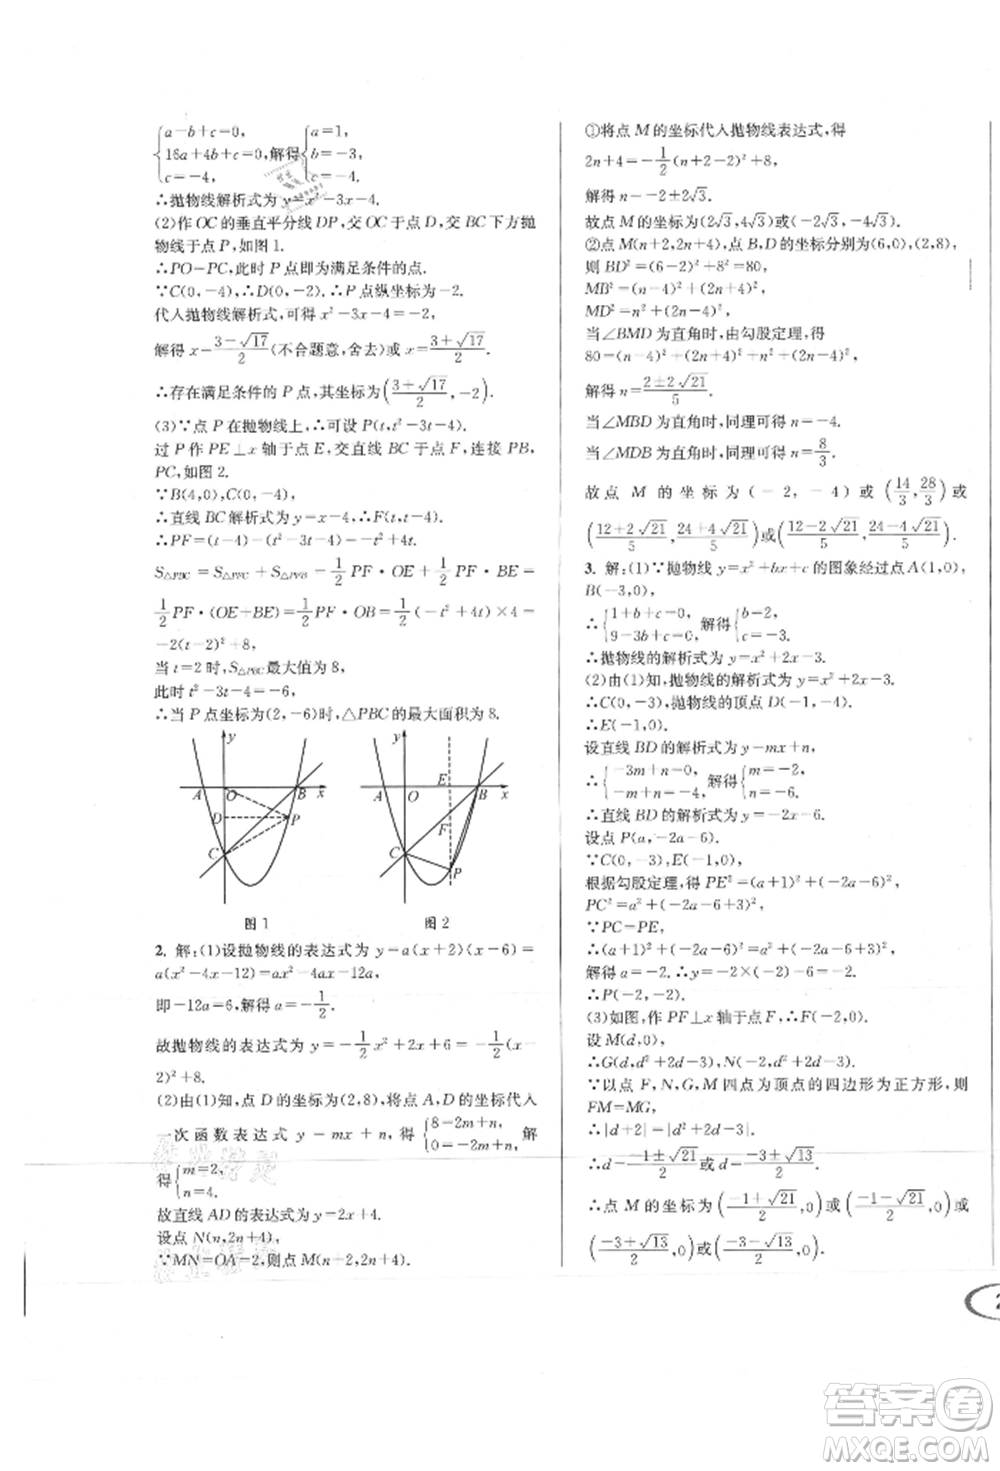 {a-b+c=0, 16a+4b+c=0, c=-4, 解得{a=1, b=-3, c=-4.
∴抛物线解析式为 y=x²-3x-4.
(2)作 OC 的垂直平分线 DP,交 OC 于点 D,交 BC 下方抛
物线于点 P,如图 1.
∴PO-PC,此时 P 点即为满足条件的点.
∵C(0,-4),∴D(0,-2),∴P 点纵坐标为-2.
代入抛物线解析式,可得 x²-3x-4=-2.
解得 x=(3-√17)/2(不合题意,舍去)或 x=(3+√17)/2.
∴存在满足条件的 P 点,其坐标为((3+√17)/2,-2).
(3)∵点 P 在抛物线上,∴可设 P(t,t²-3t-4).
过 P 作 PE⊥x 轴于点 E,交直线 BC 于点 F,连接 PB,
PC,如图 2.
∵B(4,0),C(0,-4),
∴直线 BC 解析式为 y=x-4,∴F(t,t-4).
∴PF=(t-4)-(t²-3t-4)=-t²+4t.
S△PBC=S△PFC+S△PFB=1/2 PF·OE+1/2 PF·BE=
1/2 PF·(OE+BE)=1/2 PF·OB=1/2(-t²+4t)×4=
-2(t-2)²+8,
当 t=2 时,S△PBC最大值为 8,
此时 t²-3t-4=-6,
∴当 P 点坐标为(2,-6)时,△PBC 的最大面积为 8.
y A O B x D P C
y E A O B x F C P
图 1 图 2
2. 解:(1)设抛物线的表达式为 y=a(x+2)(x-6)=
a(x²-4x-12)=ax²-4ax-12a,
即-12a=6,解得 a=-1/2,
故抛物线的表达式为 y=-1/2x²+2x+6=-1/2(x-
2)²+8.
(2)由(1)知,点 D 的坐标为(2,8),将点 A,D 的坐标代入
一次函数表达式 y-mx+n,得{8-2m+n, 0=-2m+n, 解
得{m=2, n=4.
故直线 AD 的表达式为 y=2x+4.
设点 N(n,2n+4),
∵MN=OA=2,则点 M(n+2,2n+4).
①将点 M 的坐标代入抛物线表达式,得
2n+4=-1/2(n+2-2)²+8,
解得 n--2±2√3.
故点 M 的坐标为(2√3,4√3)或(-2√3,-4√3).
②点 M(n+2,2n+4),点 B,D 的坐标分别为(6,0),(2,8),
则 BD²=(6-2)²+8²=80,
MB²=(n-4)²+(2n+4)²,
MD²=n²+(2n-4)²,
当∠BMD 为直角时,由勾股定理,得
80=(n-4)²+(2n+4)²+n²+(2n-4)²,
解得 n=(2±2√21)/5.
当∠MBD 为直角时,同理可得 n=-4.
当∠MDB 为直角时,同理可得 n=8/3.
故点 M 的坐标为(-2,-4)或(14/3,28/3)或
((12+2√21)/5,(24+4√21)/5)或((12-2√21)/5,(24-4√21)/5).
3. 解:(1)∵抛物线 y=x²+bx+c 的图象经过点 A(1,0),
B(-3,0),
∴{1+b+c=0, 9-3b+c=0, 解得{b-2, c=-3.
∴抛物线的解析式为 y=x²+2x-3.
(2)由(1)知,抛物线的解析式为 y=x²+2x-3,
∴C(0,-3),抛物线的顶点 D(-1,-4).
∴E(-1,0).
设直线 BD 的解析式为 y-mx+n,
∴{-3m+n=0, -m+n=-4, 解得{m=-2, n=-6.
∴直线 BD 的解析式为 y=-2x-6.
设点 P(a,-2a-6).
∵C(0,-3),E(-1,0),
根据勾股定理,得 PE²=(a+1)²+(-2a-6)²,
PC²=a²+(-2a-6+3)²,
∵PC-PE,
∴(a+1)²+(-2a-6)²=a²+(-2a-6+3)²,
解得 a=-2.∴y=-2×(-2)-6=-2.
∴P(-2,-2).
(3)如图,作 PF⊥x 轴于点 F,∴F(-2,0).
设 M(d,0),
∴G(d,d²+2d-3),N(-2,d²+2d-3).
∵以点 F,N,G,M 四点为顶点的四边形为正方形,则
FM=MG,
∴|d+2|=|d²+2d-3|.
∴d=(-1±√21)/2或 d=(-3±√13)/2.
∴点 M 的坐标为((-1+√21)/2,0)或((-1-√21)/2,0)或
((-3+√13)/2,0)或((-3-√13)/2,0).
2
答案卷
MXQE.COM